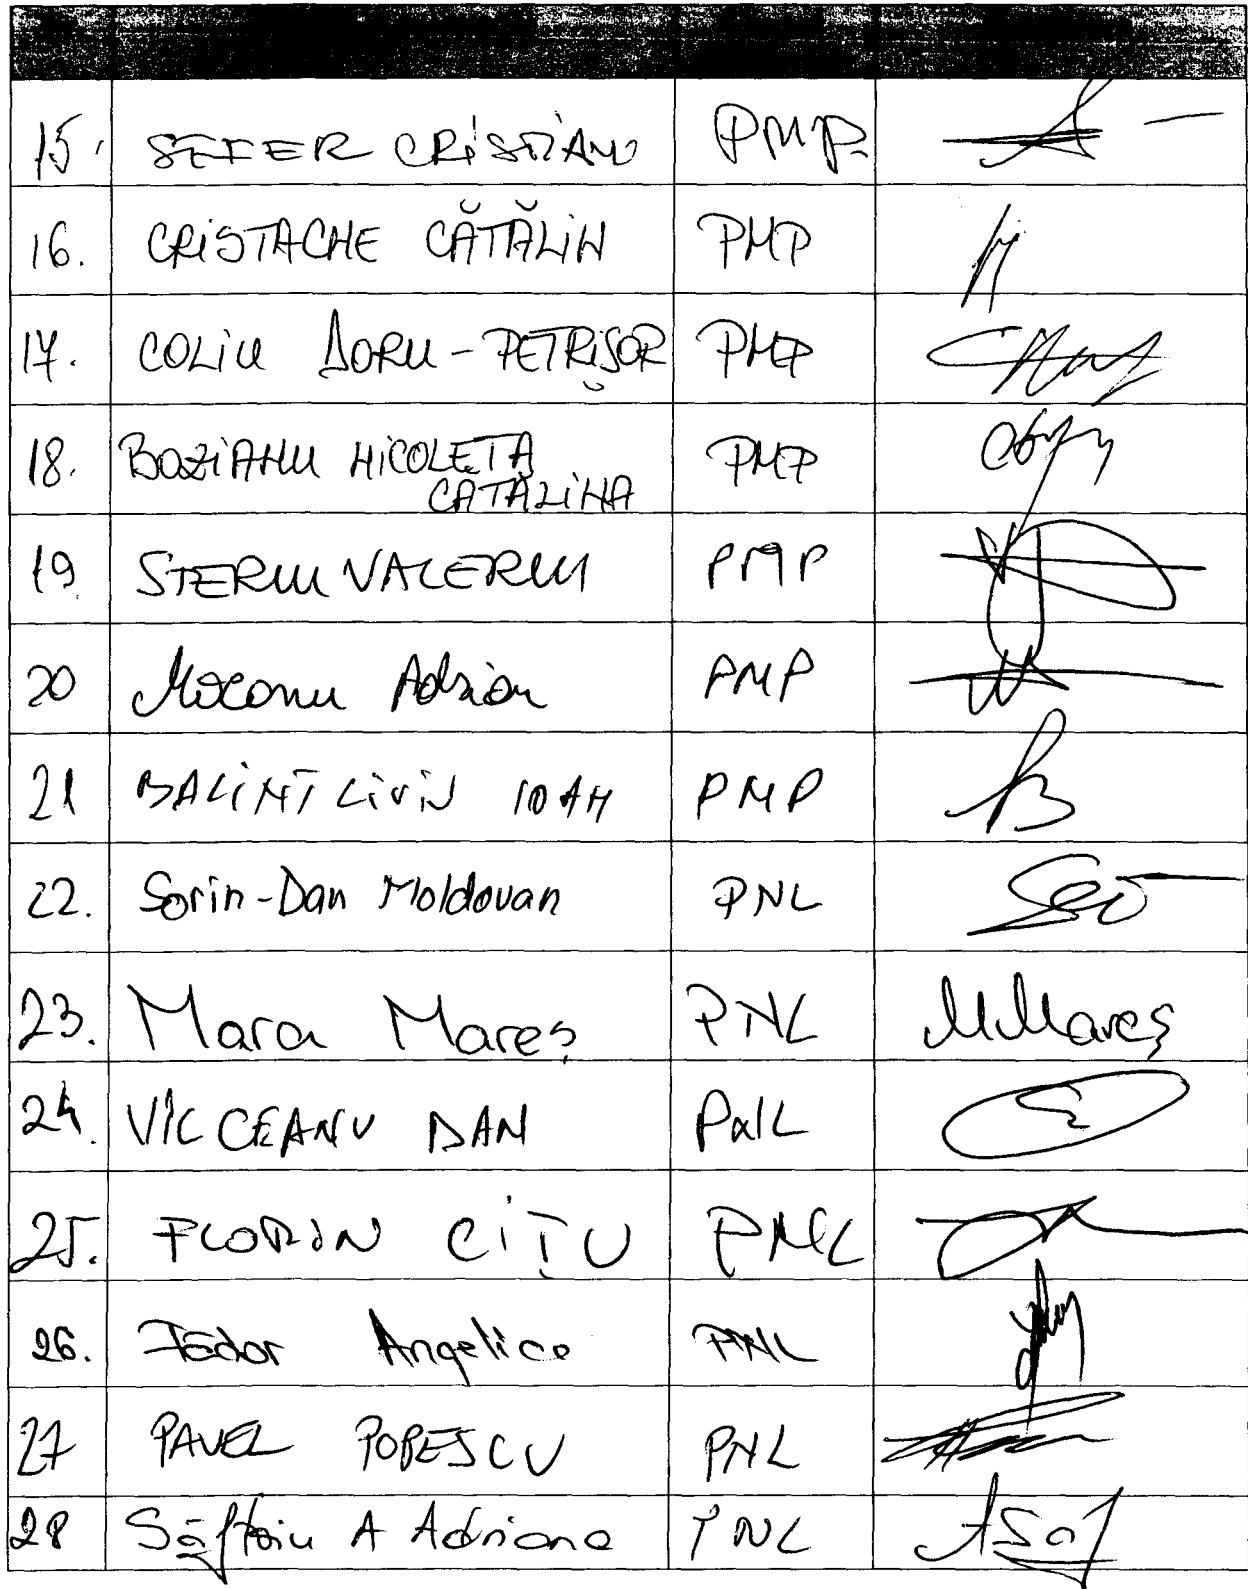 15. SEFER CRISTIAN PMP.
16. CRISTACHE CĂTĂLIN PMP
17. COLIU DORU-PETRIȘOR PMP
18. BOZIANU NICOLETA PMP
CATALINA
19 STERIU VALERIU PMP
20 Mocanu Adrian PMP
21 BALINT LIVIU IOAN PMP
22. Sorin-Dan Moldovan PNL
23. Mara Mareș PNL MMareș
24. VÎLCEANU DAN PNL
25. FLORIN CÎȚU PNL
26. Fădor Angelica PNL
27 PAVEL POPESCU PNL
28 Săftoiu A Adriana PNL